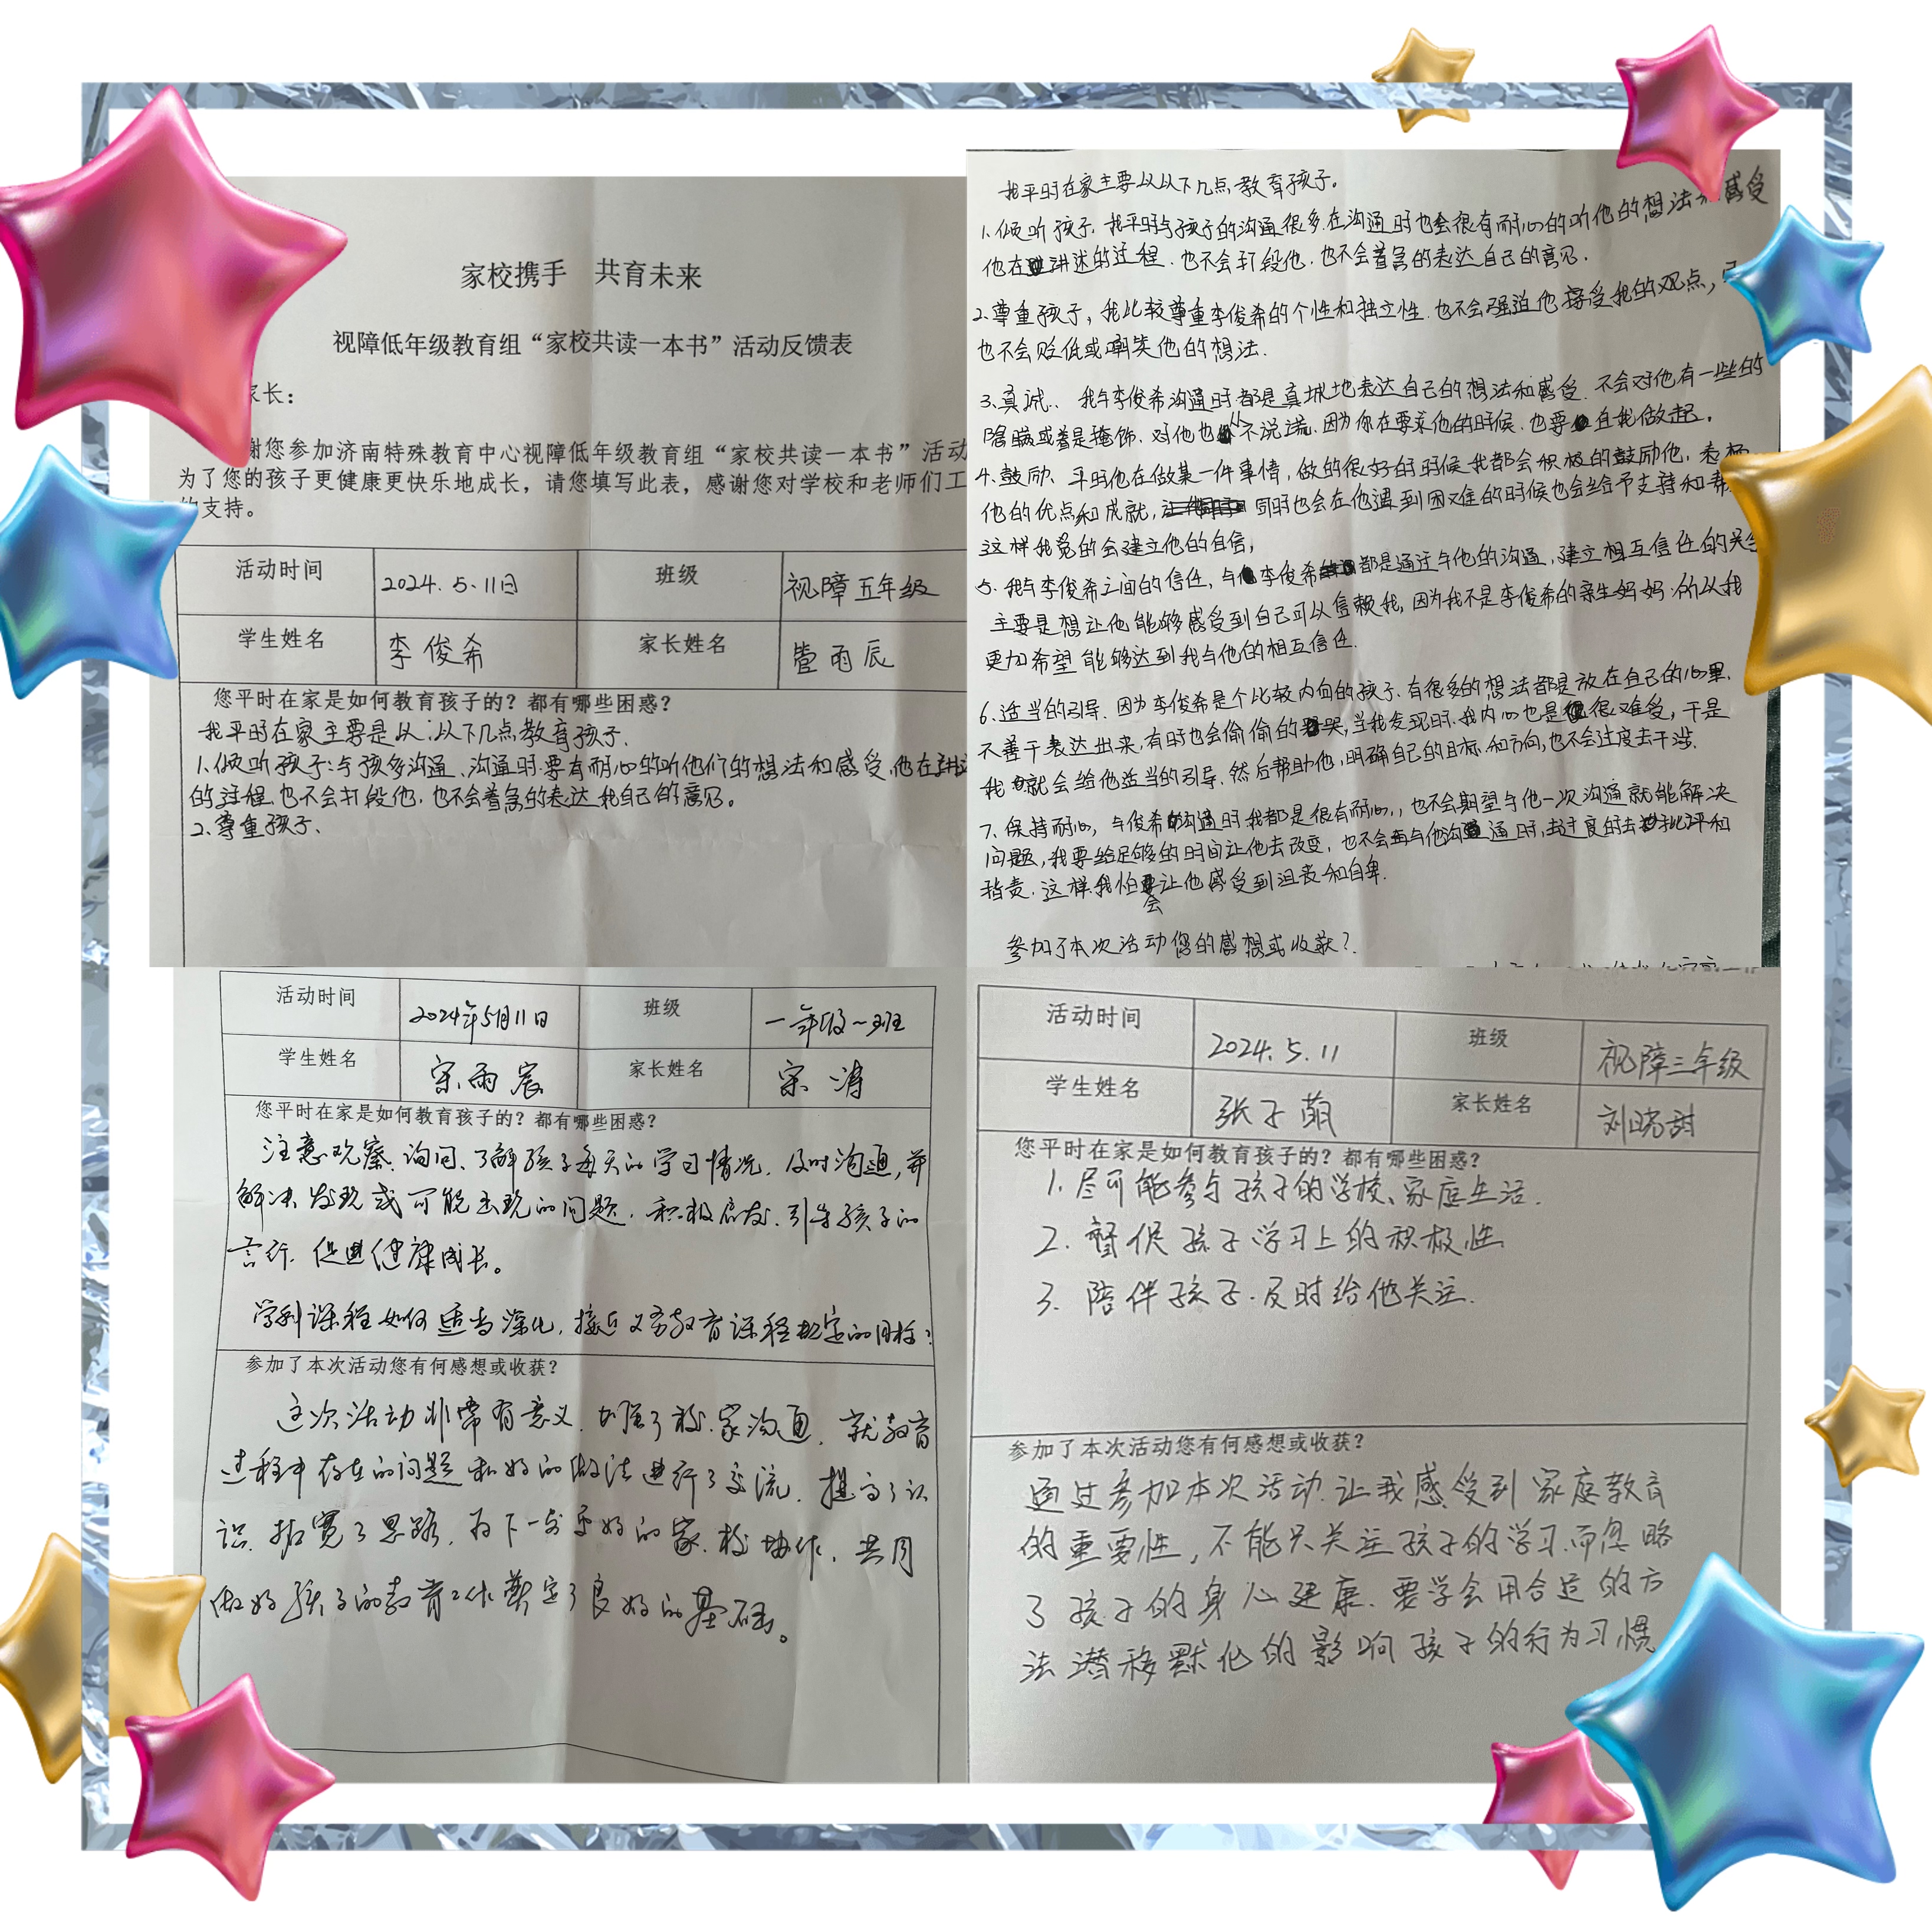 家校携手 共育未来
视障低年级教育组“家校共读一本书”活动反馈表
家长：
谢您参加济南特殊教育中心视障低年级教育组“家校共读一本书”活动
为了您的孩子更健康更快乐地成长，请您填写此表，感谢您对学校和老师们工
的支持。
活动时间 2024.5.11日 班级 视障五年级
学生姓名 李俊希 家长姓名 雨辰
您平时在家是如何教育孩子的？都有哪些困惑？
我平时在家主要是从：以下几点教育孩子.
1.倾听孩子:与孩多沟通、沟通时要有耐心的听他们的想法和感受,他在讲述
的过程.也不会打段他,也不会着急的表达我自己的意见。
2.尊重孩子、
我平时在家主要从以下几点教育孩子。
1.倾听孩子.我平时与孩子的沟通很多.在沟通时也会很有耐心的听他的想法和感受
他在讲述的过程.也不会打段他.也不会着急的表达自己的意见.
2.尊重孩子,我比较尊重李俊希的个性和独立性.也不会强迫他接受我的观点,
也不会贬低或嘲笑他的想法.
3.真诚.、我与李俊希沟通时都是真城地表达自己的想法和感受.不会对他有一些的
隐瞒或着是掩饰.对他也从不说谎.因为你在要求他的时候.也要自我做起。
4.鼓励、平时他在做某一件事情,做的很好的时候我都会积极的鼓励他,表扬
他的优点和成就,同时也会在他遇到困难的时候也会给予支持和帮
这样我觉的会建立他的自信,
5.我与李俊希之间的信任,与李俊希都是通过与他的沟通,建立相互信任的关
主要是想让他能够感受到自己可以信赖我,因为我不是李俊希的亲生妈妈.所以我
更加希望能够达到我与他的相互信任.
6.适当的引导.因为李俊希是个比较内向的孩子.有很多的想法都是放在自己的心里.
不善于表达出来,有时也会偷偷的哭,当我发现时.我内心也是很难受,于是
我就会给他适当的引导.然后帮助他,明确自己的目标和方向,也不会过度去干涉.
7.保持耐心,与俊希沟通时我都是很有耐心,,也不会期望与他一次沟通就能解决
问题,我要给足够的时间让他去改变,也不会再与他沟通时,去过度的去批评和
指责.这样我怕会让他感受到沮丧和自卑.
参加了本次活动您的感想或收获?
活动时间 2024年5月11日 班级 一年级一班
学生姓名 宋雨宸 家长姓名 宋涛
您平时在家是如何教育孩子的？都有哪些困惑？
注意观察、询问、了解孩子每天的学习情况,及时沟通,并
解决发现或可能出现的问题.积极启发.引导孩子的
言行.促进健康成长。
学科课程如何适当深化,接近义务教育课程规定的目标?
参加了本次活动您有何感想或收获？
这次活动非常有意义.加强了校、家沟通、就教育
过程中存在的问题和好的做法进行了交流.提高了认
识.拓宽了思路,为下一步更好的家、校协作.共同
做好孩子的教育工作奠定了良好的基础。
活动时间 2024.5.11 班级 视障三年级
学生姓名 张子萌 家长姓名 刘晓甜
您平时在家是如何教育孩子的？都有哪些困惑？
1.尽可能参与孩子的学校、家庭生活.
2.督促孩子学习上的积极性
3.陪伴孩子.及时给他关注.
参加了本次活动您有何感想或收获？
通过参加本次活动.让我感受到家庭教育
的重要性,不能只关注孩子的学习.而忽略
了孩子的身心健康.要学会用合适的方
法潜移默化的影响孩子的行为习惯